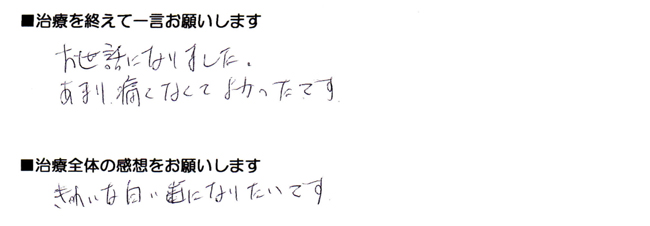 ■治療を終えて一言お願いします
お世話になりました。
あまり痛くなくてよかったです
■治療全体の感想をお願いします
きれいな白い歯になりたいです